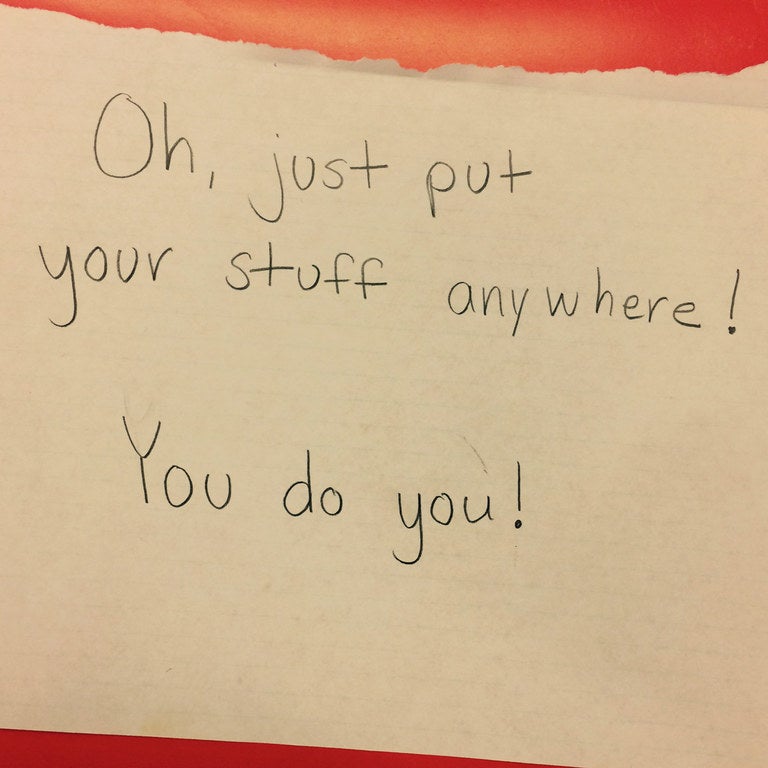 Oh, just put
your stuff anywhere!
You do you!